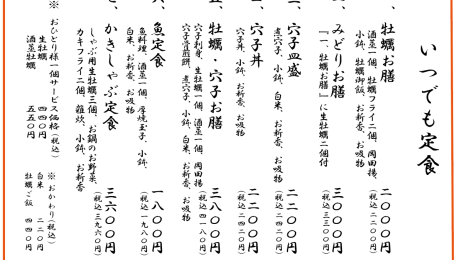 いつでも定食
、牡蠣お膳 二〇〇〇円
酒蒸一個、牡蠣フライ二個、岡田揚、
小鉢、牡蠣御飯、お新香、お吸物 (税込二二〇〇円)
、みどりお膳 三〇〇〇円
『一、牡蠣お膳』に生牡蠣二個付 (税込三三〇〇円)
、穴子皿盛 二二〇〇円
煮穴子、小鉢、白米、お新香、お吸物 (税込二四二〇円)
、穴子丼 二二〇〇円
穴子丼、小鉢、お新香、お吸物 (税込二四二〇円)
、牡蠣・穴子お膳 三八〇〇円
穴子刺身、生牡蠣一個、酒蒸一個、岡田揚、
穴子骨煎餅、煮穴子、小鉢、白米、お新香、お吸物 (税込四一八〇円)
、魚定食 一八〇〇円
魚料理、酒蒸一個、厚焼玉子、小鉢、
白米、お新香、お吸物 (税込一九八〇円)
、かきしゃぶ定食 三六〇〇円
しゃぶ用生牡蠣三個、お鍋のお野菜、
カキフライ二個、雑炊、小鉢、お新香 (税込三九六〇円)
※ おひとり様一個サービス価格(税込)
生牡蠣 四四〇円
酒蒸牡蠣 五五〇円
※ おかわり(税込)
白米 二二〇円
牡蠣ご飯 四四〇円